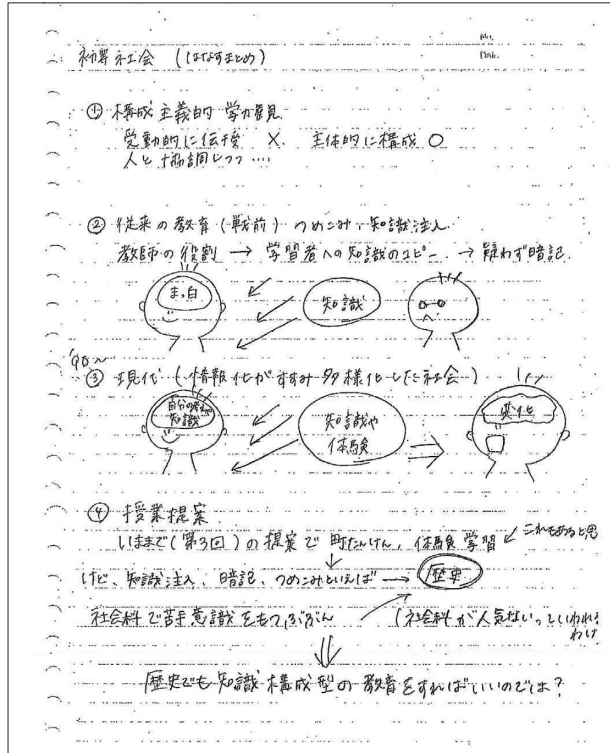 No.
Date
初等社会 (はなすまとめ)
① 構成主義的学力観
受動的に伝授 X 主体的に構成 ○
人と協調しつつ....
② 従来の教育(戦前) つめこみ・知識注入
教師の役割 → 学習者への知識のコピー → 疑わず暗記
まっ白
知識
'90〜
③ 現代 (情報化がすすみ多様化した社会)
自分の考えや知識
知識や体験
変化
④ 授業提案
いままで(第3回)の提案で町たんけん、体験学習 ← これもあると思う
けど、知識注入、暗記、つめこみといえば → 歴史
社会科で苦手意識をもつぶぶん (社会科が人気ないっていわれるわけ
歴史でも知識構成型の教育をすればいいのでは?